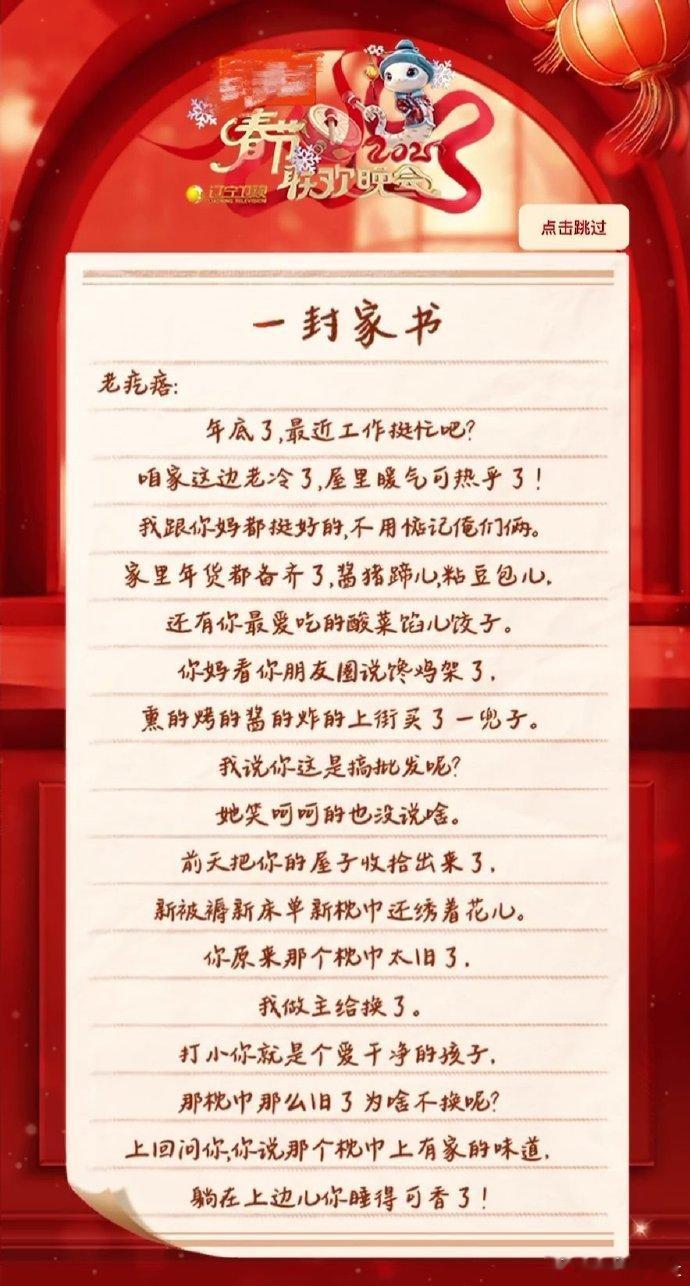 春节
2025
联欢晚会
辽宁卫视
LIAONING TELEVISION
点击跳过
一封家书
老疙瘩:
年底了,最近工作挺忙吧?
咱家这边老冷了,屋里暖气可热乎了!
我跟你妈都挺好的,不用惦记俺们俩。
家里年货都备齐了,酱猪蹄儿,粘豆包儿,
还有你最爱吃的酸菜馅儿饺子。
你妈看你朋友圈说馋鸡架了,
熏的烤的酱的炸的上街买了一兜子。
我说你这是搞批发呢?
她笑呵呵的也没说啥。
前天把你的屋子收拾出来了,
新被褥新床单新枕巾还绣着花儿。
你原来那个枕巾太旧了,
我做主给换了。
打小你就是个爱干净的孩子,
那枕巾那么旧了为啥不换呢?
上回问你,你说那个枕巾上有家的味道,
躺在上边儿你睡得可香了!